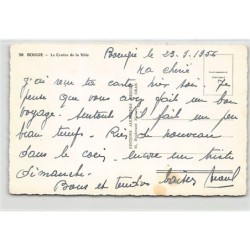 98 BOUGIE - Le Centre de la Ville
Bougie 23-1-1956
Ma chérie
J'ai reçu ta carte hier soir. Je
pense que vous avez fait un bon
voyage. Surtout il fait un peu
beau temps. Rien de nouveau
dans le coin, encore un triste
dimanche.
Bons et tendres baisers